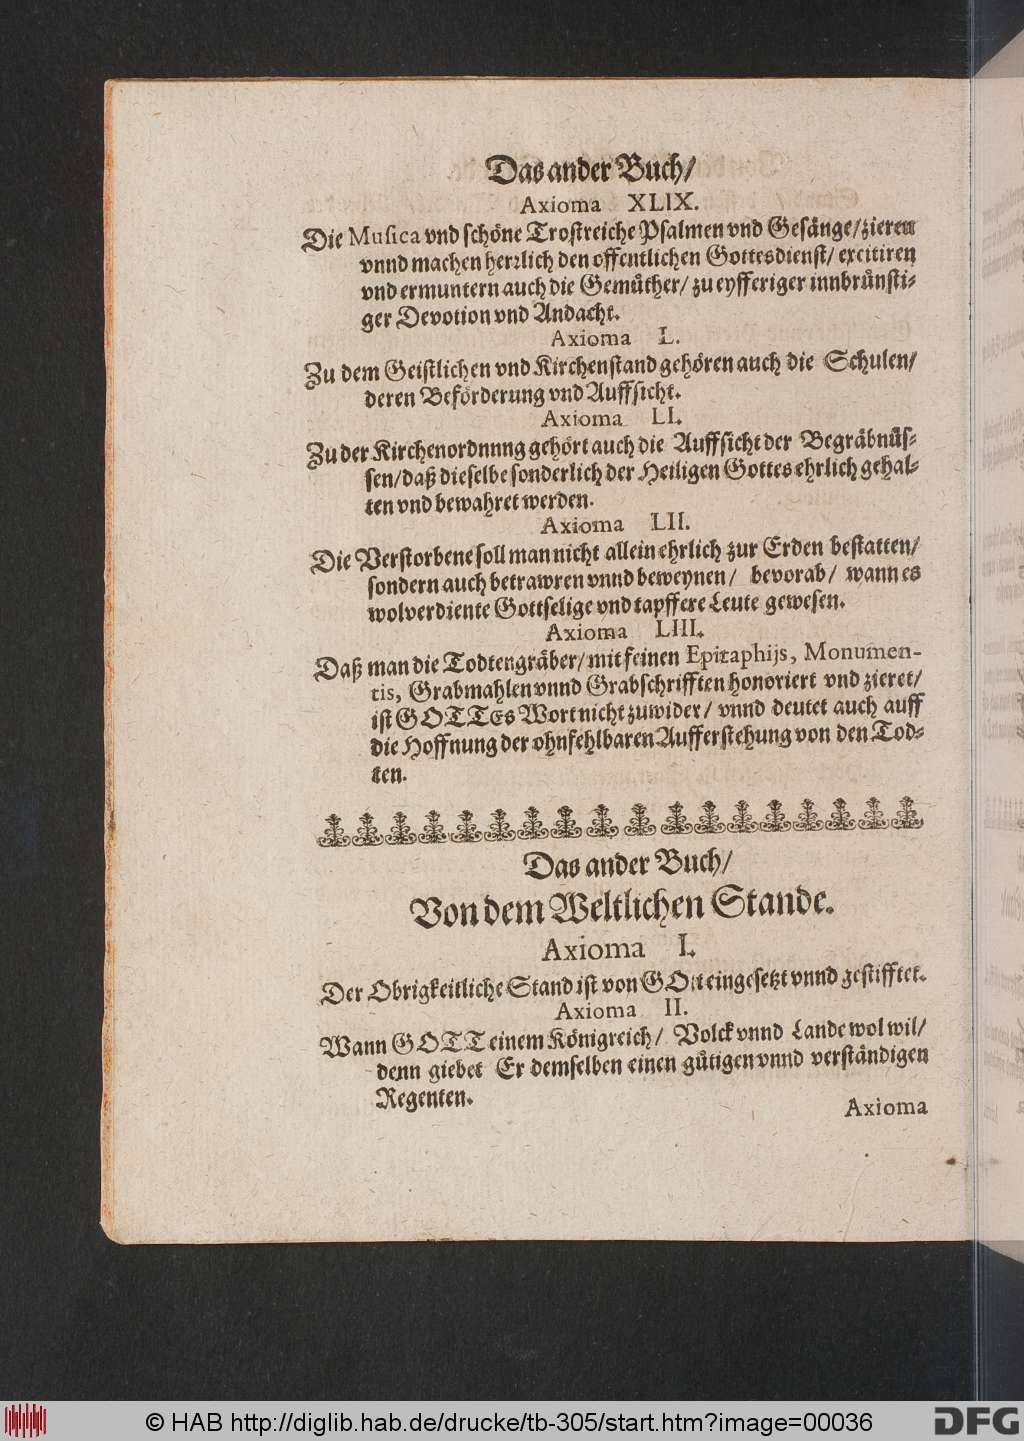 Das ander Buch/
Axioma XLIX.
Die Musica vnd schöne Trostreiche Psalmen vnd Gesänge/ zieren
vnnd machen herrlich den offentlichen Gottesdienst/ excitiren
vnd ermuntern auch die Gemüther/ zu eyfferiger innbrünsti-
ger Devotion vnd Andacht.
Axioma L.
Zu dem Geistlichen vnd Kirchenstand gehören auch die Schulen/
deren Beförderung vnd Auffsicht.
Axioma LI.
Zu der Kirchenordnnng gehört auch die Auffsicht der Begräbnüs-
sen/ daß dieselbe sonderlich der Heiligen Gottes ehrlich gehal-
ten vnd bewahret werden.
Axioma LII.
Die Verstorbene soll man nicht allein ehrlich zur Erden bestatten/
sondern auch betrawren vnnd beweynen/ bevorab/ wann es
wolverdiente Gottselige vnd tapffere Leute gewesen.
Axioma LIII.
Daß man die Todtengräber/ mit feinen Epitaphijs, Monumen-
tis, Grabmahlen vnnd Grabschrifften honoriert vnd zieret/
ist GOTTES Wort nicht zuwider/ vnnd deutet auch auff
die Hoffnung der ohnfehlbaren Aufferstehung von den Tod-
ten.
Das ander Buch/
Von dem Weltlichen Stande.
Axioma I.
Der Obrigkeitliche Stand ist von GOtt eingesetzt vnnd gestifftet.
Axioma II.
Wann GOTT einem Königreich/ Volck vnnd Lande wol wil/
denn giebet Er demselben einen gütigen vnnd verständigen
Regenten.
Axioma
© HAB http://diglib.hab.de/drucke/tb-305/start.htm?image=00036
DFG